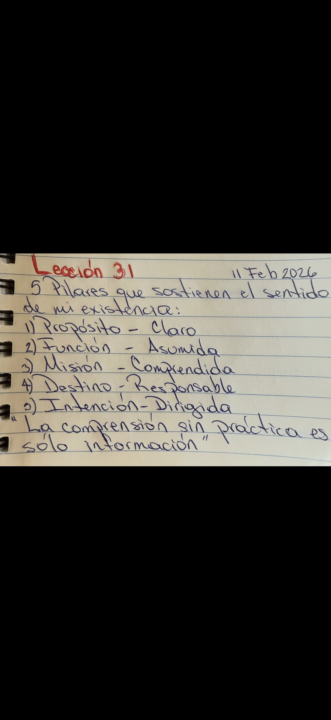 Lección 31
11 Feb 2026
5 Pilares que sostienen el sentido
de mi existencia:
1) Propósito - Claro
2) Función - Asumida
3) Misión - Comprendida
4) Destino - Responsable
5) Intención - Dirigida
"La comprensión sin práctica es
sólo información"